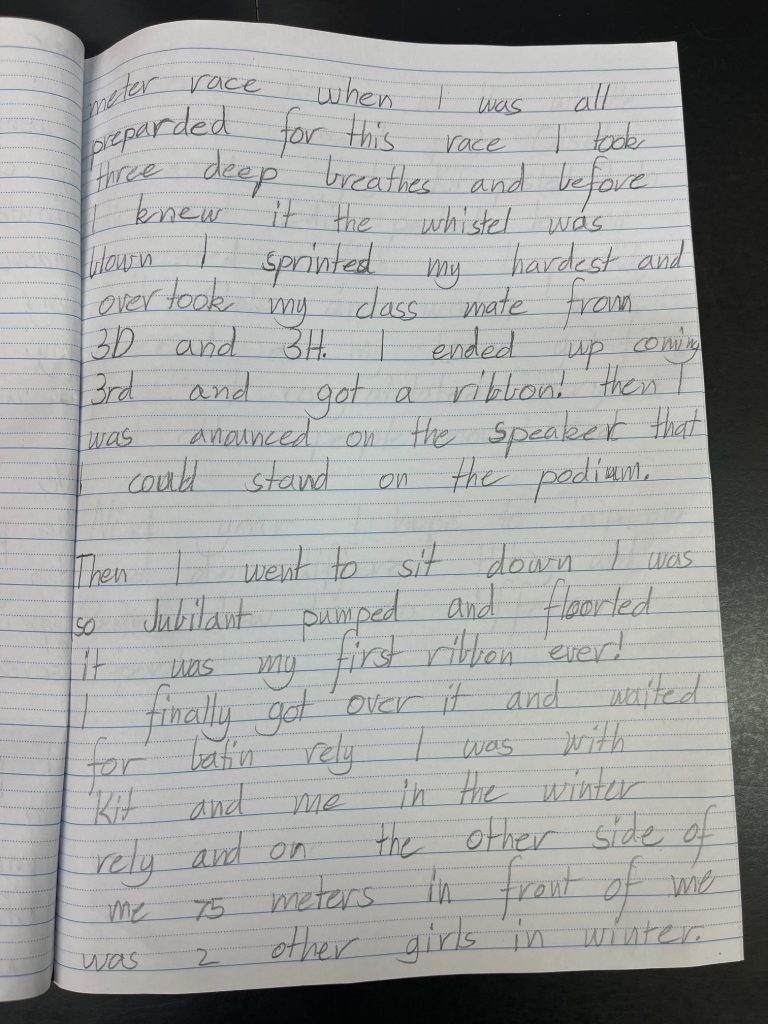 meter race when I was all
preparded for this race I took
three deep breathes and before
I knew it the whistel was
blown I sprinted my hardest and
over took my class mate from
3D and 3H. I ended up coming
3rd and got a ribbon! then I
was anounced on the speaker that
I could stand on the podium.
Then I went to sit down I was
so Jubilant pumped and floorted
it was my first ribbon ever!
I finally got over it and waited
for batin rely I was with
Kit and me in the winter
rely and on the other side of
me 75 meters in front of me
was 2 other girls in winter.